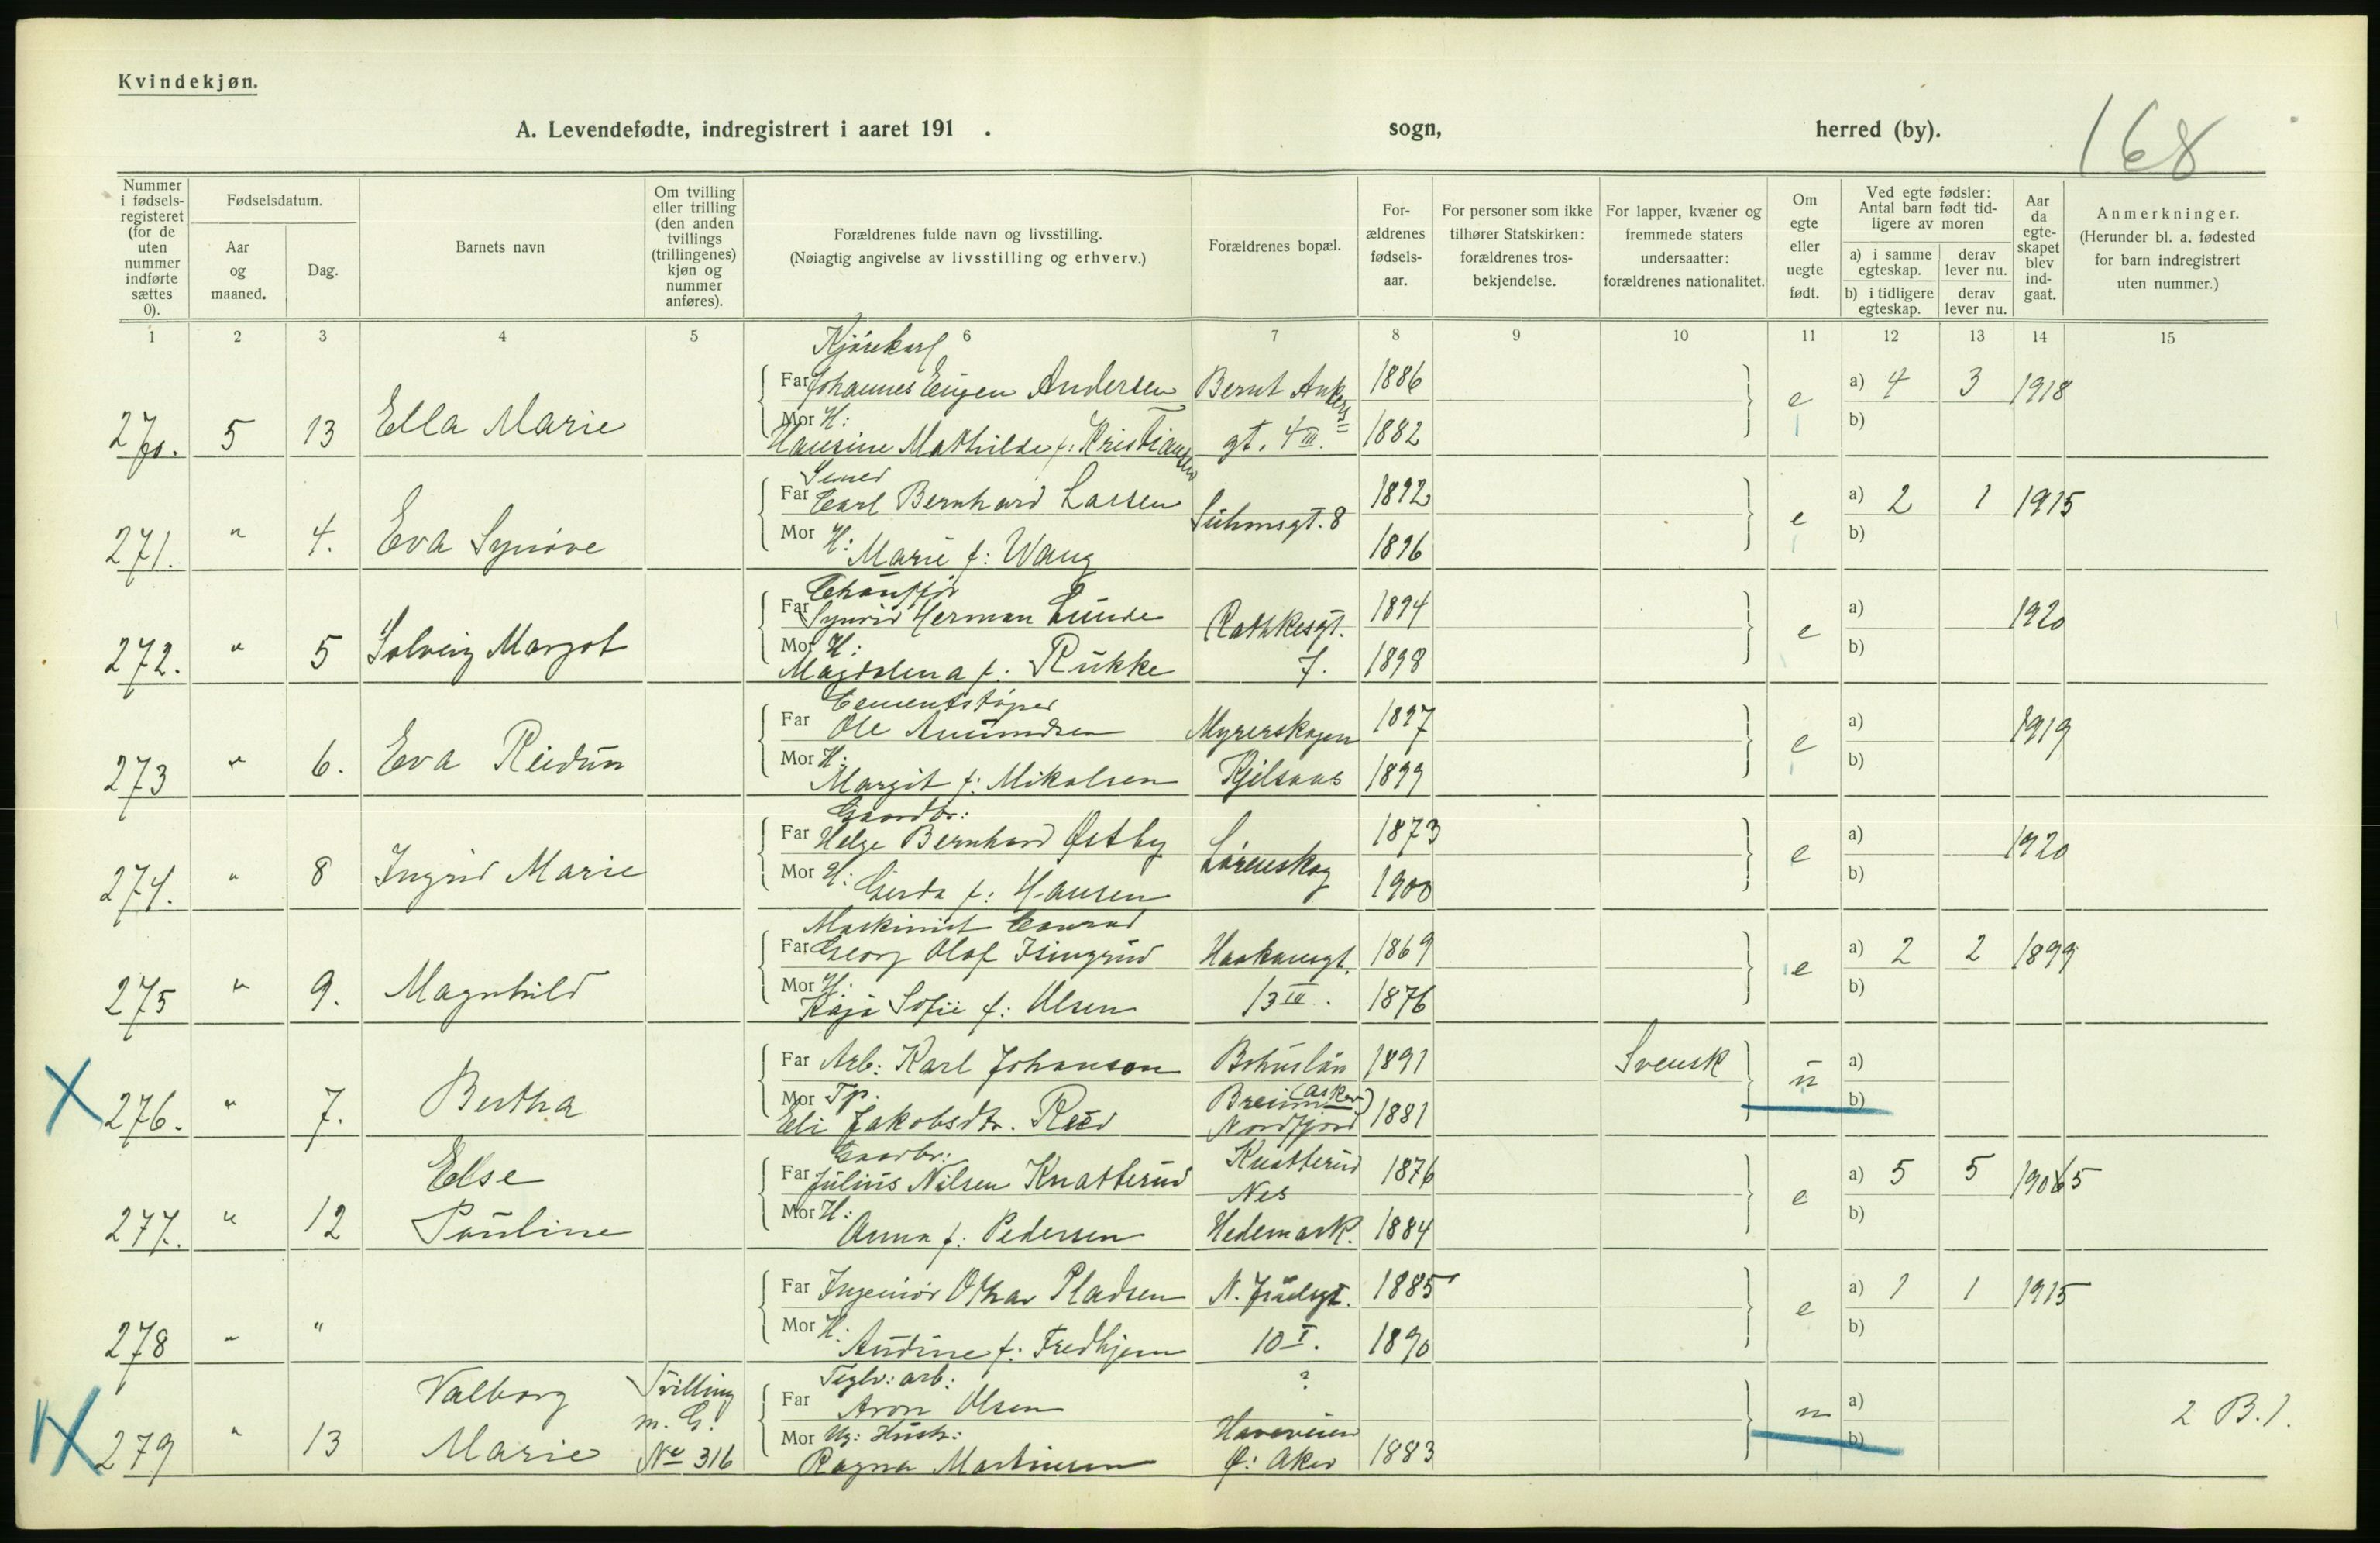 Kvindekjøn.
A. Levendefødte, indregistrert i aaret 191 . sogn, herred (by).
168
Nummer i fødsels-registeret (for de uten nummer indførte sættes 0).
Fødselsdatum.
Aar og maaned.
Dag.
Barnets navn
Om tvilling eller trilling (den anden tvillings (trillingenes) kjøn og nummer anføres).
Forældrenes fulde navn og livsstilling.
(Nøiagtig angivelse av livsstilling og erhverv.)
Forældrenes bopæl.
For-ældrenes fødsels-aar.
For personer som ikke tilhører Statskirken: forældrenes tros-bekjendelse.
For lapper, kvæner og fremmede staters undersaatter: forældrenes nationalitet.
Om egte eller uegte født.
Ved egte fødsler: Antal barn født tid-ligere av moren
a) i samme egteskap.
derav lever nu.
b) i tidligere egteskap.
derav lever nu.
Aar da egte-skapet blev ind-gaat.
Anmerkninger.
(Herunder bl. a. fødested for barn indregistrert uten nummer.)
1 2 3 4 5 6 7 8 9 10 11 12 13 14 15
Kjørekarl
Far Johannes Eugen Andersen Bernt Ankers 1886 a) 4 3 1918
270. 5 13 Ella Marie Mor H: e b)
Hansine Mathilde f: Kristiansen gt. 4 III. 1882
Far Carl Bernhard Larsen 1892 a) 2 1 1915
271. " 4. Eva Synøve Mor H: Marie f: Wang Suhmsgt. 8 1896 e b)
Chauffør
Far Sigurd Herman Lunde Rathkesgt. 1894 a) 1920
272. " 5 Solveig Margot Mor H: e b)
Magdalena f: Rukke 7. 1898
Cementstøper
Far Ole Amundsen Myrerskogen 1897 a) 1919
273 " 6. Eva Reidun Mor H: e b)
Margit f: Mikalsen Kjelsaas 1899
Gaardbr:
Far Helge Bernhard Østby Lørenskog 1873 a) 1920
274. " 8 Ingrid Marie Mor H: Gerda f: Hansen 1900 e b)
Maskinist Conrad
Far Georg Olaf Isingrud Haakonsgt. 1869 a) 2 2 1899
275 " 9. Magnhild Mor H: e b)
Kaja Sofie f: Olsen 13 III. 1876
Far Arb: Karl Johanson Bohuslän 1891 Svensk a)
276. " 7. Bertha Mor Tp. Breim (Asker) u b)
Eli Jakobsdtr. Reed Nordfjord 1881
Gaardbr:
Else Far Julius Nilsen Knatterud Knatterud 1876 a) 5 5 1905
277. " 12 Pauline Mor H: Nes e b)
Anna f: Pedersen Hedemark. 1884
Far Ingeniør Othar Pladsen N. Juelsgt. 1885 a) 1 1 1915
278 " " Mor H: Audine f: Fredhjem 10 I. 1890 e b)
Teglv: arb: ?
Valborg Tvilling Far Aron Olsen a)
279 " 13 Marie m. G. Nr 316 Mor Ug: Hush: Haveveien u b) 2 B.1.
Ragna Martinsen Ø: Aker 1883